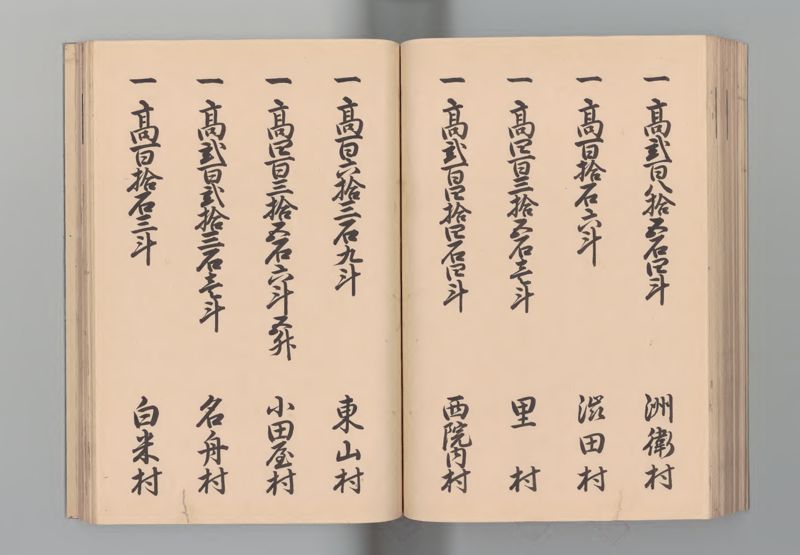 一高弐百八拾五石四斗 洲衛村
一高百拾石六斗 澁田村
一高四百三拾五石壱斗 里村
一高弐百四拾四石四斗 西院内村
一高百六拾三石九斗 東山村
一高四百三拾五石六斗五升 小田屋村
一高弐百弐拾三石壱斗 名舟村
一高百拾石三斗 白米村